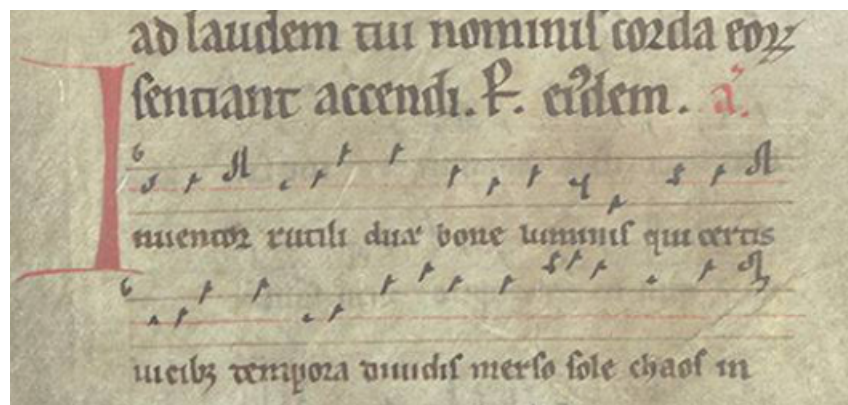 ad laudem tui nominiſ corda eoꝝ
ſentiant accendi. ꝶ. eiꝰdem. a̾.
Inuentor rutili dux bone luminiſ qui certis
uicibꝫ tempora diuidiſ merſo ſole chaoſ in